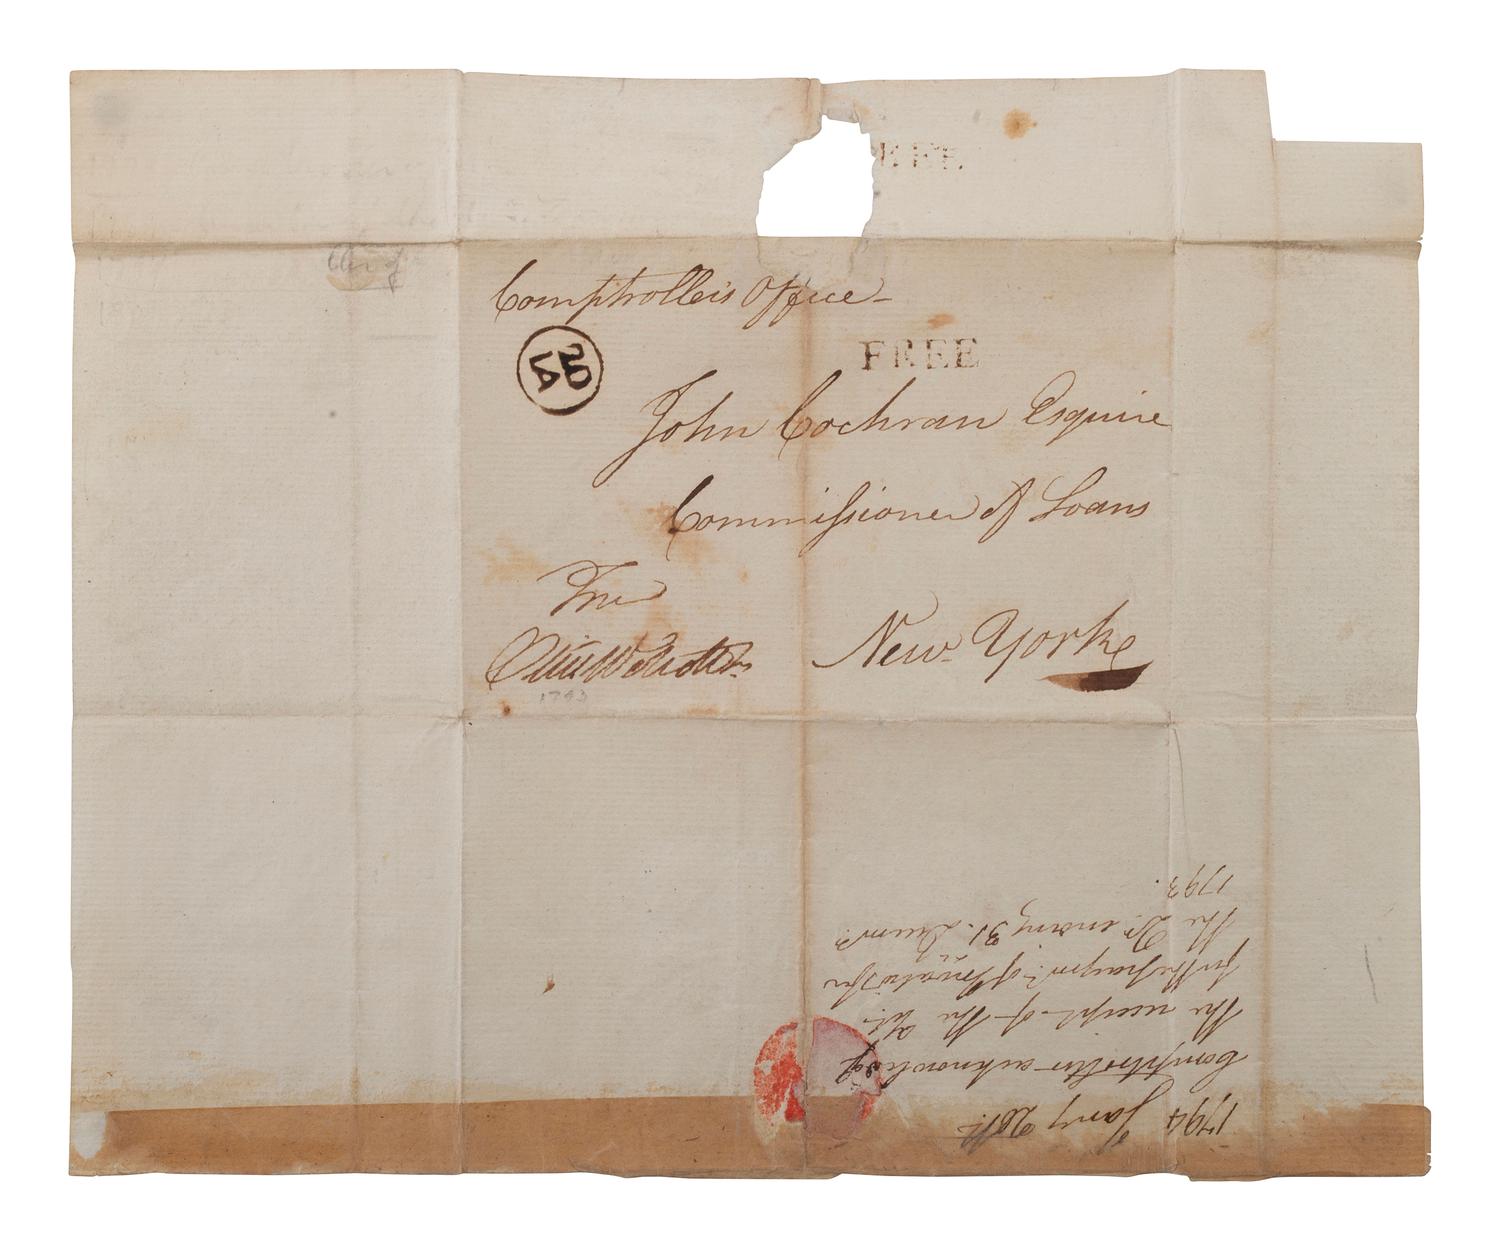 FREE
Comptroller's Office
FREE
John Cochran Esquire
Commissioner of Loans
Free
Oliv Wolcott Jr
New York
1793
1794 Jany 20th
Comptroller acknowledg
the receipt of the
for the paymt of Invalids for
the Yr ending 31. Decemr
1793.